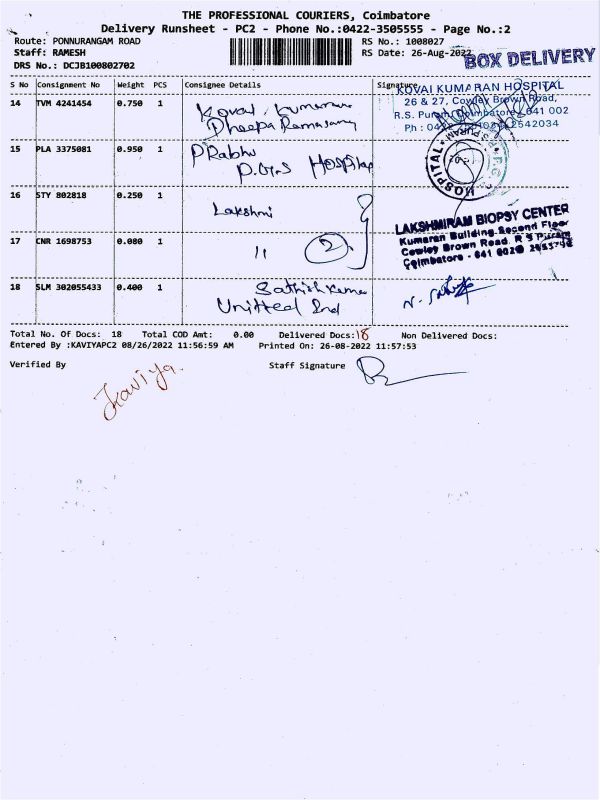 THE PROFESSIONAL COURIERS, Coimbatore
Delivery Runsheet - PC2 - Phone No.:0422-3505555 - Page No.:2
Route: PONNURANGAM ROAD RS No.: 1008027
Staff: RAMESH RS Date: 26-Aug-2022
DRS No.: DCJB100802702
BOX DELIVERY
S No Consignment No Weight PCS Consignee Details Signature
KOVAI KUMARAN HOSPITAL
26 & 27, Cowley Brown Road,
R.S. Puram, Coimbatore - 641 002
2542034
14 TVM 4241454 0.750 1 Kovai Kumaran
Dheepa Ramasamy
15 PLA 3375081 0.950 1 PRabhu
P.G.S Hospital
HOSPITAL
16 STY 802818 0.250 1 Lakshmi
LAKSHMIRAM BIOPSY CENTER
Kumaran Building, Second Floor
Cowley Brown Road, R S Puram
Coimbatore - 641 002
17 CNR 1698753 0.080 1 11 2
18 SLM 302055433 0.400 1 Sathish Kumar
Unitted 2nd
Total No. Of Docs: 18 Total COD Amt: 0.00 Delivered Docs: 18 Non Delivered Docs:
Entered By :KAVIYAPC2 08/26/2022 11:56:59 AM Printed On: 26-08-2022 11:57:53
Verified By Staff Signature
Kaviya.